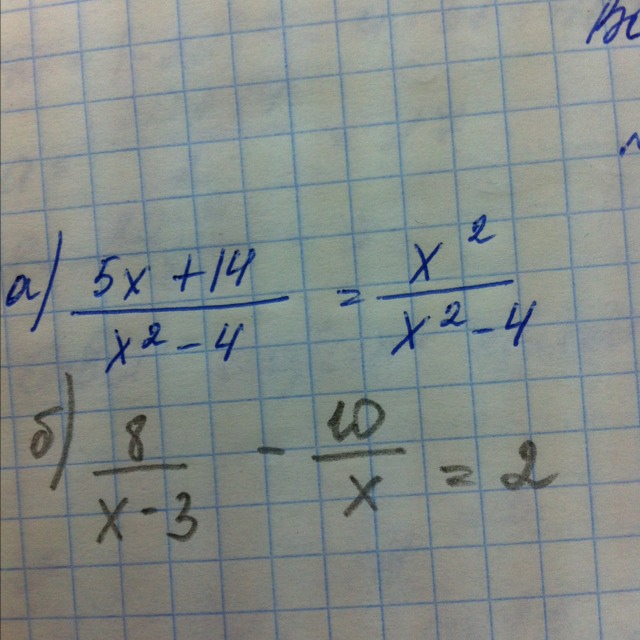 а) (5x + 14)/(x² - 4) = x²/(x² - 4)
б) 8/(x - 3) - 10/x = 2